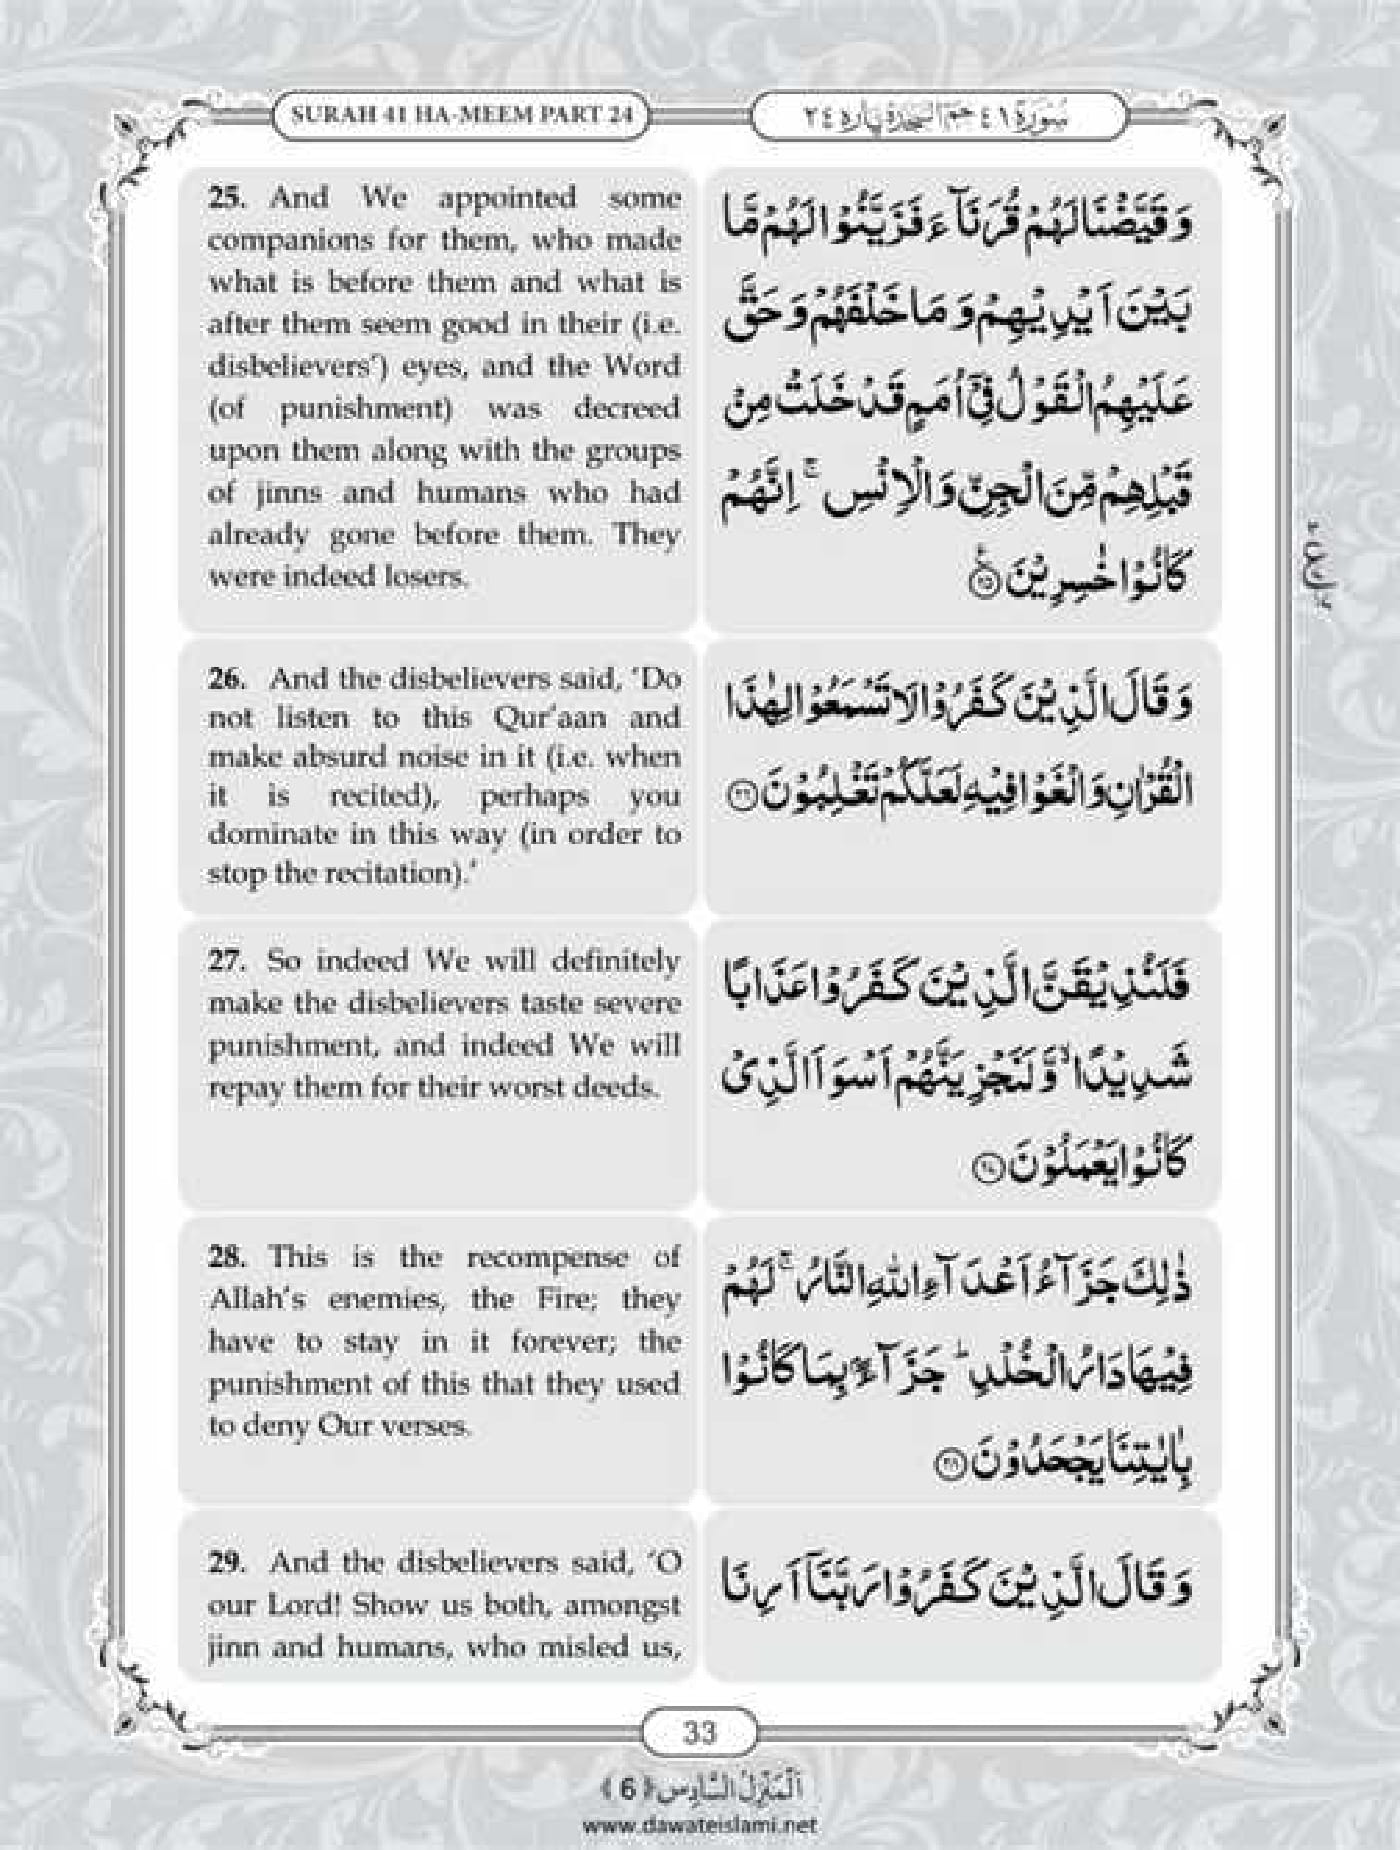 SURAH 41 HA-MEEM PART 24
سُوْرَة ٤١ حٰمٓ السَّجْدَة پاره ٢٤
25. And We appointed some
companions for them, who made
what is before them and what is
after them seem good in their (i.e.
disbelievers’) eyes, and the Word
(of punishment) was decreed
upon them along with the groups
of jinns and humans who had
already gone before them. They
were indeed losers.
وَ قَيَّضْنَا لَهُمْ قُرَنَآءَ فَزَيَّنُوْا لَهُمْ مَّا
بَيْنَ اَيْدِيْهِمْ وَ مَا خَلْفَهُمْ وَ حَقَّ
عَلَيْهِمُ الْقَوْلُ فِيْۤ اُمَمٍ قَدْ خَلَتْ مِنْ
قَبْلِهِمْ مِّنَ الْجِنِّ وَ الْاِنْسِ ۚ اِنَّهُمْ
كَانُوْا خٰسِرِيْنَ ﴿۲۵﴾
26. And the disbelievers said, ‘Do
not listen to this Qur’aan and
make absurd noise in it (i.e. when
it is recited), perhaps you
dominate in this way (in order to
stop the recitation).’
وَ قَالَ الَّذِيْنَ كَفَرُوْا لَا تَسْمَعُوْا لِهٰذَا
الْقُرْاٰنِ وَ الْغَوْا فِيْهِ لَعَلَّكُمْ تَغْلِبُوْنَ ﴿۲۶﴾
27. So indeed We will definitely
make the disbelievers taste severe
punishment, and indeed We will
repay them for their worst deeds.
فَلَنُذِيْقَنَّ الَّذِيْنَ كَفَرُوْا عَذَابًا
شَدِيْدًا ۙ وَّ لَنَجْزِيَنَّهُمْ اَسْوَاَ الَّذِيْ
كَانُوْا يَعْمَلُوْنَ ﴿۲۷﴾
28. This is the recompense of
Allah’s enemies, the Fire; they
have to stay in it forever; the
punishment of this that they used
to deny Our verses.
ذٰلِكَ جَزَآءُ اَعْدَآءِ اللّٰهِ النَّارُ ۚ لَهُمْ
فِيْهَا دَارُ الْخُلْدِ ؕ جَزَآءًۢ بِمَا كَانُوْا
بِاٰيٰتِنَا يَجْحَدُوْنَ ﴿۲۸﴾
29. And the disbelievers said, ‘O
our Lord! Show us both, amongst
jinn and humans, who misled us,
وَ قَالَ الَّذِيْنَ كَفَرُوْا رَبَّنَاۤ اَرِنَا
33
اَلْمَنْزِلُ السَّادِس ﴿6﴾
www.dawateislami.net